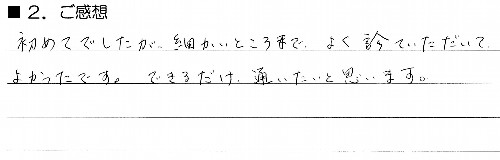 ■ 2．ご感想
初めてでしたが、細かいところまで、よく診ていただいて、
よかったです。できるだけ、通いたいと思います。